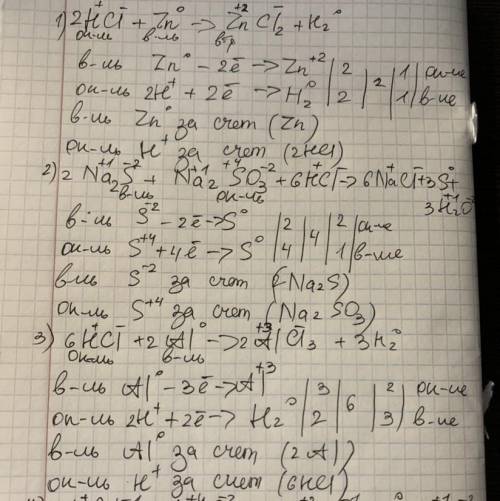 1) 2H⁺Cl⁻ + Zn⁰ → Zn⁺²Cl₂⁻ + H₂⁰
ок-ль в-ль
в-ль Zn⁰ - 2ē → Zn⁺² | 2 | 2 | 1 | ок-ие
ок-ль 2H⁺ + 2ē → H₂⁰ | 2 | | 1 | в-ие
в-ль Zn⁰ за счет (Zn)
ок-ль H⁺ за счет (2HCl)
2) 2Na₂⁺¹S⁻² + Na₂⁺¹S⁺⁴O₃⁻² + 6H⁺Cl⁻ → 6Na⁺Cl⁻ + 3S⁰ +
3H₂⁺¹O⁻²
в-ль ок-ль
в-ль S⁻² - 2ē → S⁰ | 2 | 4 | 2 | ок-ие
ок-ль S⁺⁴ + 4ē → S⁰ | 4 | | 1 | в-ие
в-ль S⁻² за счет (Na₂S)
ок-ль S⁺⁴ за счет (Na₂SO₃)
3) 6H⁺Cl⁻ + 2Al⁰ → 2Al⁺³Cl₃⁻ + 3H₂⁰
ок-ль в-ль
в-ль Al⁰ - 3ē → Al⁺³ | 3 | 6 | 2 | ок-ие
ок-ль 2H⁺ + 2ē → H₂⁰ | 2 | | 3 | в-ие
в-ль Al⁰ за счет (2Al)
ок-ль H⁺ за счет (6HCl)